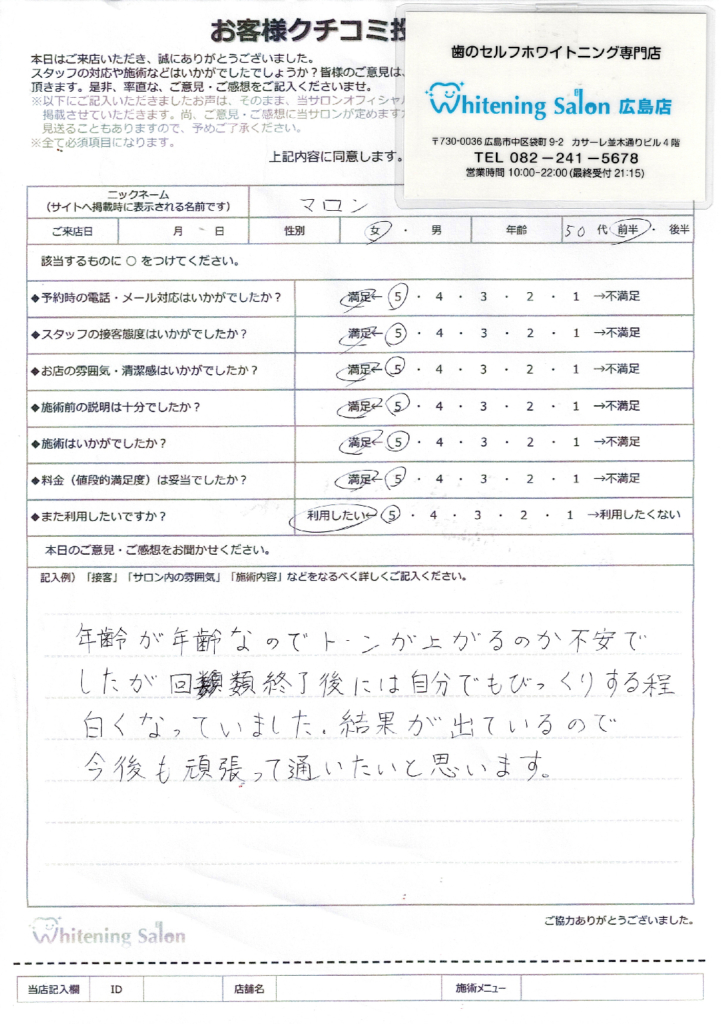 お客様クチコミ投
本日はご来店いただき、誠にありがとうございました。
スタッフの対応や施術などはいかがでしたでしょうか？皆様のご意見は、
頂きます。是非、率直な、ご意見・ご感想をご記入くださいませ。
※以下にご記入いただきましたお声は、そのまま、当サロンオフィシャル
掲載させていただきます。尚、ご意見・ご感想に当サロンが定めます
見送ることもありますので、予めご了承ください。
※全て必須項目になります。
上記内容に同意します。
歯のセルフホワイトニング専門店
Whitening Salon 広島店
〒730-0036 広島市中区袋町 9-2 カサーレ並木通りビル 4 階
TEL 082-241-5678
営業時間 10:00-22:00 (最終受付 21:15)
ニックネーム
（サイトへ掲載時に表示される名前です） マロン
ご来店日 月 日 性別 女 ・ 男 年齢 50 代 前半 ・ 後半
該当するものに ○ をつけてください。
◆予約時の電話・メール対応はいかがでしたか？ 満足← 5 ・ 4 ・ 3 ・ 2 ・ 1 →不満足
◆スタッフの接客態度はいかがでしたか？ 満足← 5 ・ 4 ・ 3 ・ 2 ・ 1 →不満足
◆お店の雰囲気・清潔感はいかがでしたか？ 満足← 5 ・ 4 ・ 3 ・ 2 ・ 1 →不満足
◆施術前の説明は十分でしたか？ 満足← 5 ・ 4 ・ 3 ・ 2 ・ 1 →不満足
◆施術はいかがでしたか？ 満足← 5 ・ 4 ・ 3 ・ 2 ・ 1 →不満足
◆料金（値段的満足度）は妥当でしたか？ 満足← 5 ・ 4 ・ 3 ・ 2 ・ 1 →不満足
◆また利用したいですか？ 利用したい← 5 ・ 4 ・ 3 ・ 2 ・ 1 →利用したくない
本日のご意見・ご感想をお聞かせください。
記入例）「接客」「サロン内の雰囲気」「施術内容」などをなるべく詳しくご記入ください。
年齢が年齢なのでトーンが上がるのか不安で
したが回類終了後には自分でもびっくりする程
白くなっていました。結果が出ているので
今後も頑張って通いたいと思います。
ご協力ありがとうございました。
Whitening Salon
当店記入欄 ID 店舗名 施術メニュー